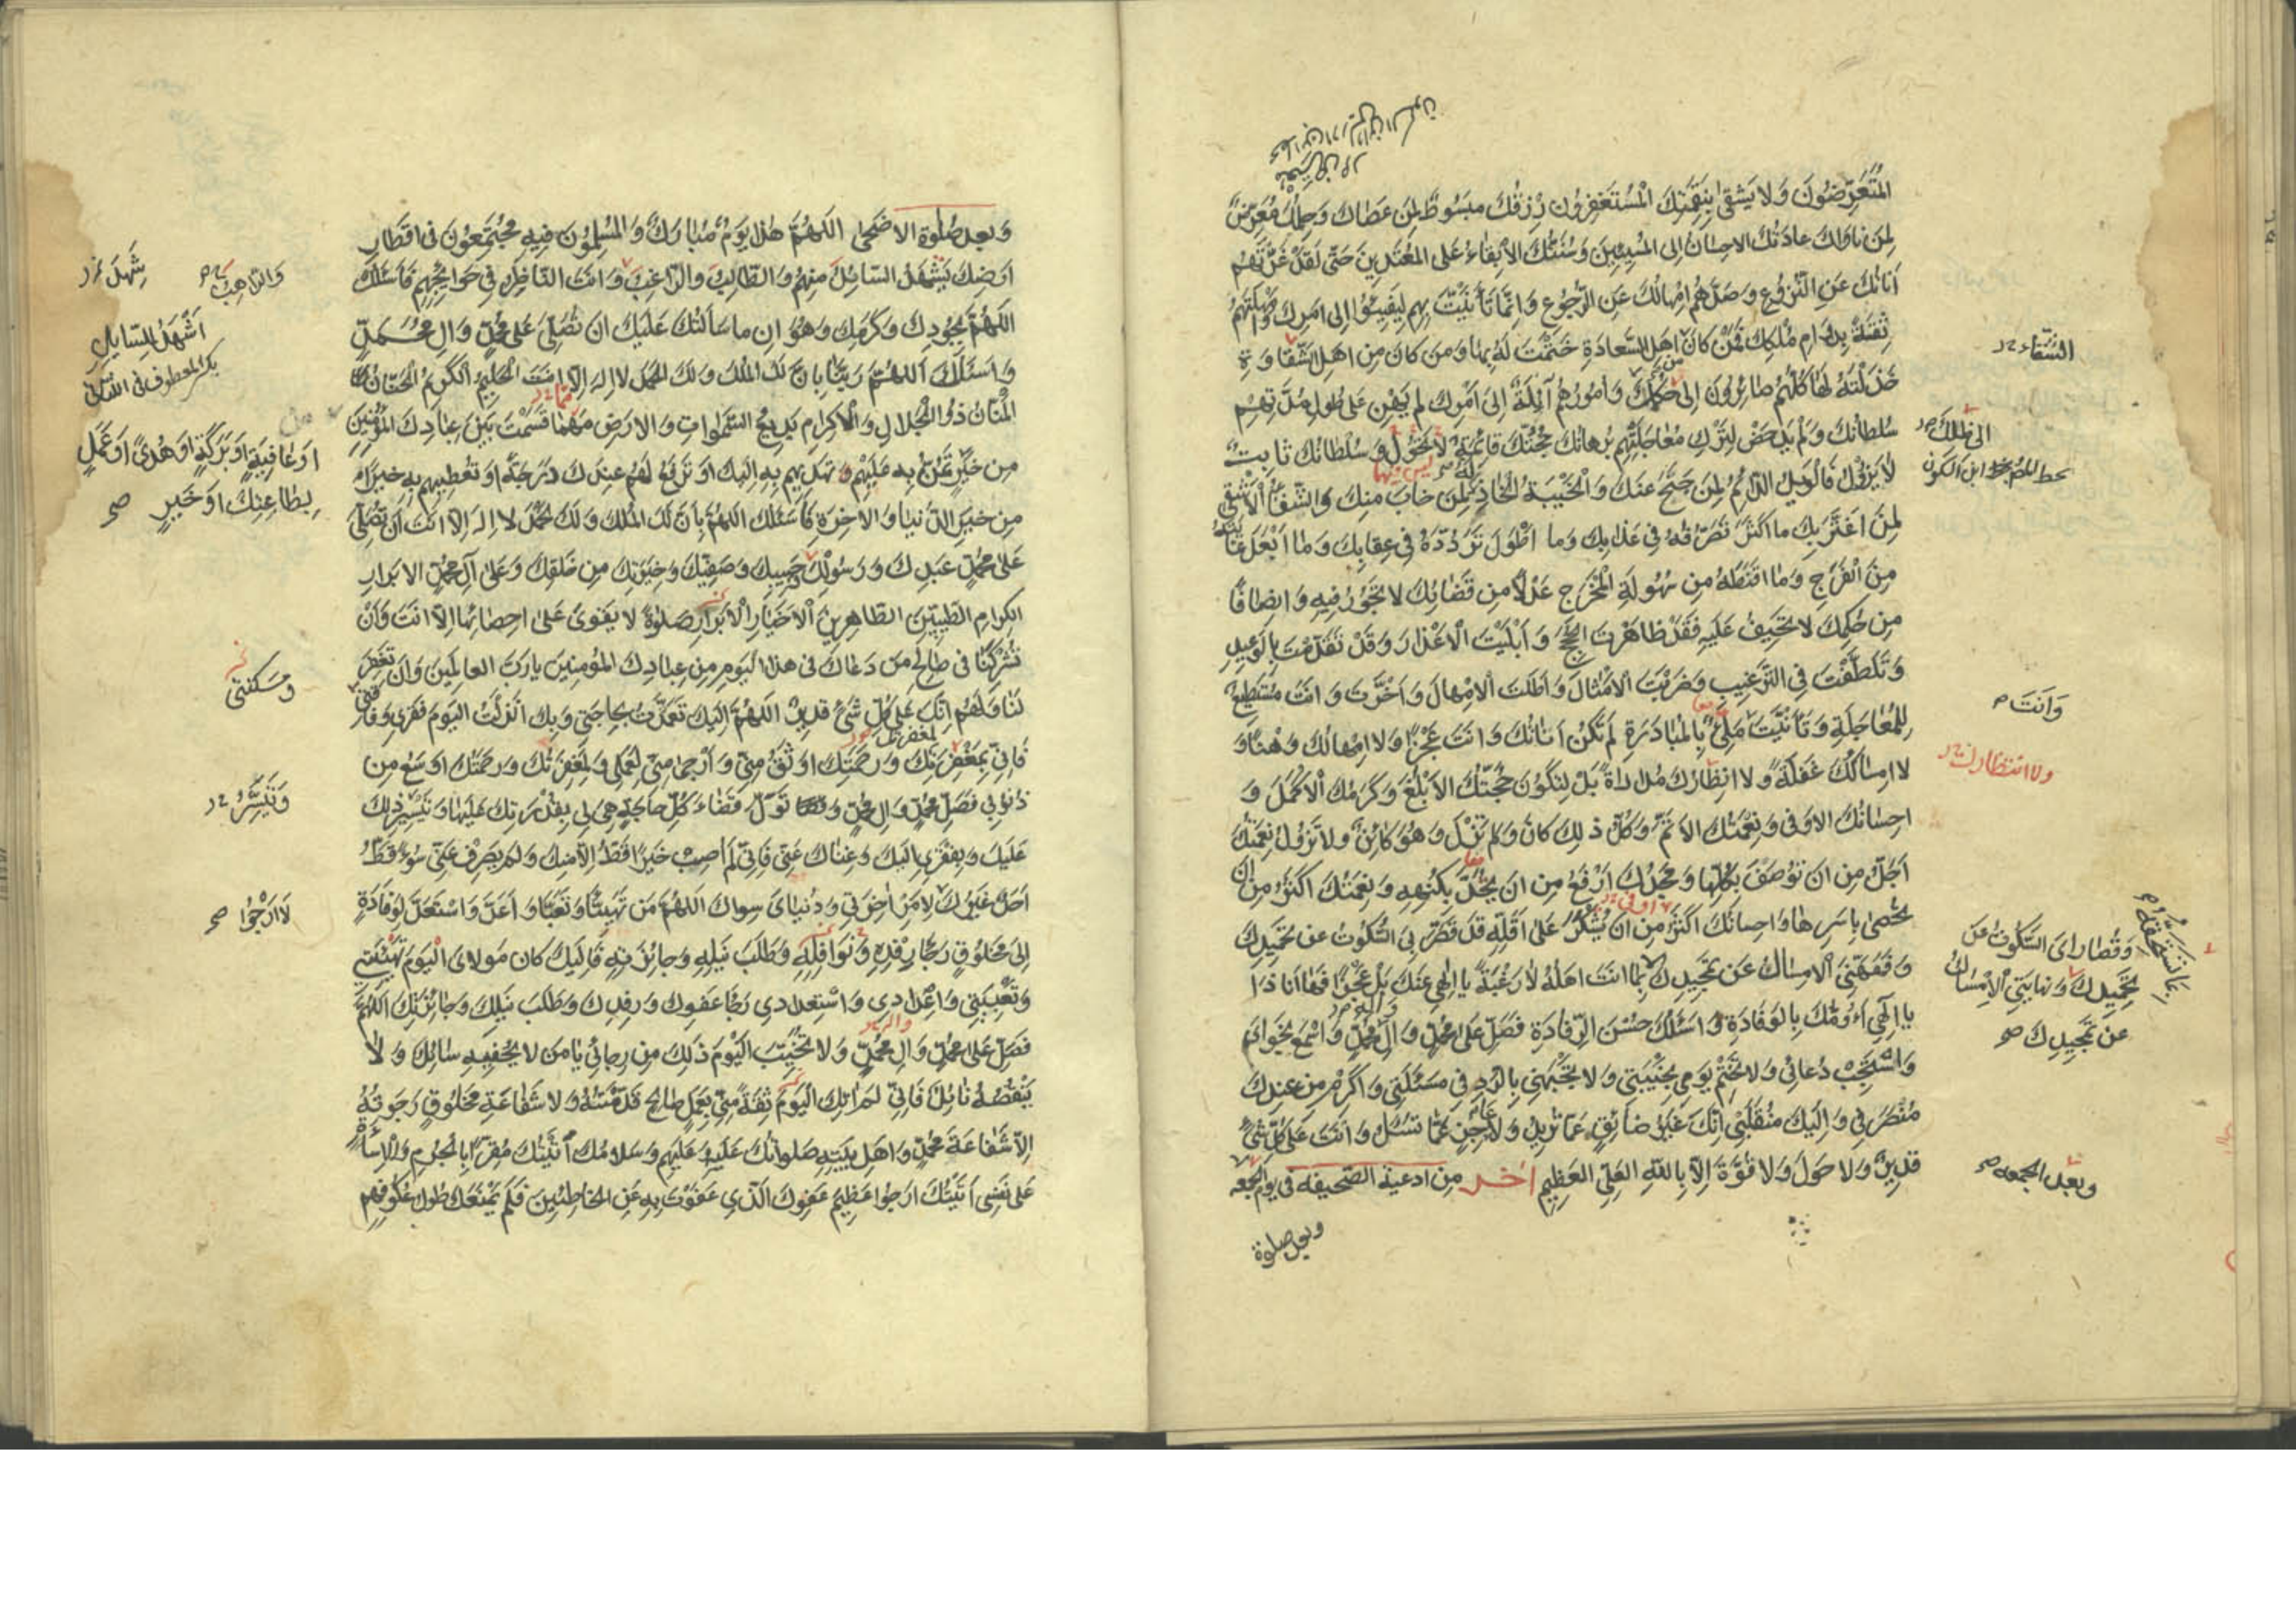 المُتَعَرِّضُونَ وَلا يَشقىٰ بِنِقْمَتِكَ الْمُستَغفِرُون رِزقُكَ مبسُوطٌ لِمَن عَصَاكَ وَحِلمُكَ مُعتَرِضٌ
لِمَن ناوَاكَ عَادَتُكَ الاحسَانُ اِلى المُسِيئِينَ وَسُنَّتُكَ الاِبقاءُ عَلى المُعْتَدِينَ حَتّى لَقَدْ غَرَّتهُم
اَنَاتُكَ عَنِ النُّزُوعِ وَصَدَّهُم اِمهَالُكَ عَنِ الرُّجُوعِ وَاِنَّمَا تَأَنَّيْتَ بِهِم لِيَفِيئُوا اِلى اَمرِكَ وَاَمهَلتَهُم
ثِقَةً بِدَوَامِ مُلكِكَ فَمَنْ كَانَ مِن اَهلِ السَّعَادَةِ خَتَمتَ لَهُ بِهَا وَمَن كَانَ مِن اَهلِ الشَّقَاوَةِ
خَذَلْتَهُ لَهَا كُلُّهُم صَائِرُونَ اِلى حُكمِكَ وَاُمُورُهُم آئِلَةٌ اِلىٰ اَمْرِكَ لَم يَهِن عَلى طُولِ مُدَّتِهِم
سُلطَانُكَ وَلَم يَدحَض لِتَركِ مُعَاجَلَتِهِم بُرهَانُكَ حُجَّتُكَ قَائِمَةٌ لا تَحُولُ وَسُلطَانُكَ ثَابِتٌ
لا يَزُولُ فَالوَيلُ الدَّائِمُ لِمَن جَنَحَ عَنكَ وَالخَيبَةُ الخَاذِلَةُ لِمَن خَابَ مِنكَ وَالشَّقَاءُ الاَشقى
لِمَنِ اغتَرَّ بِكَ مَا اَكثَرَ تَصَرُّفَهُ فِي عَذَابِكَ وَمَا اَطْوَلَ تَرَدُّدَهُ فِي عِقَابِكَ وَمَا اَبْعَدَ غَايَتَهُ
مِنَ الفَرَجِ وَمَا اَقنَطَهُ مِن سُهُولَةِ المَخْرَجِ عَدلاً مِن قَضَائِكَ لا تَجُورُ فِيهِ وَاِنصَافًا
مِن حُكمِكَ لا تَحِيفُ عَلَيهِ فَقَد ظَاهَرتَ الحُجَجَ وَاَبْلَيْتَ الاَعْذَارَ وَقَد تَقَدَّمتَ بِالوَعِيدِ
وَتَلَطَّفْتَ فِي التَّرغِيبِ وَضَرَبتَ الاَمْثَالَ وَاَطَلتَ الاِمهَالَ وَاَخَّرتَ وَانتَ مُستَطِيعٌ
لِلمُعَاجَلَةِ وَتَأَنَّيتَ وَاَنتَ مَلِيءٌ بِالمُبَادَرَةِ لَم تَكُن اَنَاتُكَ عَجْزًا وَلا اِمهَالُكَ وَهنًا وَ
لا اِمسَاكُكَ غَفلَةً وَلا انتِظَارُكَ مُدَارَاةً بَلْ لِتَكُونَ حُجَّتُكَ الاَبلَغَ وَكَرَمُكَ الاَكمَلَ وَ
اِحسَانُكَ الاَوفى وَنِعْمَتُكَ الاَتَمَّ وَكُلُّ ذلِكَ كَانَ وَلَم تَزَل وَهُوَ كَائِنٌ وَلا تَزُولُ نِعمَتُكَ
اَجَلُّ مِن اَن تُوصَفَ بِكُلِّهَا وَمَجدُكَ اَرفَعُ مِن اَن يُحَدَّ بِكُنهِهِ وَنِعمَتُكَ اَكثَرُ مِن اَن
تُحصى بِاَسرِهَا وَاِحسَانُكَ اَكثَرُ مِن اَن يُشكَرَ عَلى اَقَلِّهِ قَد قَصَّرَ بِيَ السُّكُوتُ عَن تَحمِيدِكَ
وَفَهَّهَنِيَ الاِمسَاكُ عَن تَمجِيدِكَ بِمَا اَنتَ اَهلُهُ لا رَغبَةً يَا اِلهي عَنكَ بَل عَجْزًا فَهَا اَنَا ذَا
يَا اِلٰهي اَؤُمُّكَ بِالوِفَادَةِ وَاَسئَلُكَ حُسْنَ الرِّفَادَةِ فَصَلِّ عَلى مُحَمَّدٍ وَآلِ مُحَمَّدٍ وَاسمَع نَجوَاىَ
وَاسْتَجِبْ دُعَائِي وَلا تَخْتِمْ يَومِي بِخَيْبَتِي وَلا تَجْبَهنِي بِالرَّدِّ فِي مَسئَلَتِي وَاَكرِم مِن عِندِكَ
مُنْصَرَفِي وَاِلَيكَ مُنْقَلَبِي اِنَّكَ غَيرُ ضَائِقٍ عَمَّا تُرِيدُ وَلا عَاجِزٍ عَمَّا تُسئَلُ وَاَنتَ عَلى كُلِّ شَيءٍ
قَدِيرٌ وَلا حَولَ وَلا قُوَّةَ اِلّا بِاللّهِ العَلِيِّ العَظِيمِ اخر مِن ادعية الصحيفه فى يوم الجمعه
وبعد صلوة
الشقاء
الى ظلك
وَاَنتَ
ولا انتظارك
وَقُصَارَاىَ السُّكُوتُ عَن
تَحمِيدِكَ وَنهايتِي الاِمسَاكُ
عن تمجِيدِكَ صح
وبعد الجمعه
وَبعد صلوة الاضحى اللهُمَّ هذا يَومٌ مُبَارَكٌ وَالمُسلِمُونَ فِيهِ مُجتَمِعُونَ فى اقطَارِ
اَرضِكَ يَشهَدُ السَّائِلُ مِنهُم وَالطَّالِبُ وَالرَّاغِبُ وَاَنتَ النَّاظِرُ فِي حَوَائِجِهِم فَاَسئَلُكَ
اللهُمَّ بِجُودِكَ وَكَرَمِكَ وَهَوَانِ مَا سَأَلتُكَ عَلَيكَ اَن تُصَلِّيَ عَلى مُحَمَّدٍ وَالِ مُحَمَّدٍ
وَاَسئَلُكَ اللهُمَّ رَبَّنَا بِاَنَّ لَكَ المُلكَ وَلَكَ الحَمدَ لا اِلهَ اِلّا اَنتَ الحَلِيمُ الكَرِيمُ الحَنَّانُ
المَنَّانُ ذُو الجَلالِ وَالاِكرَامِ بَدِيعُ السَّمواتِ وَالاَرضِ مَهمَا قَسَمتَ بَينَ عِبَادِكَ المُؤمِنِينَ
مِن خَيرٍ تَمُنُّ بِهِ عَلَيهِم تَهدِيهِم بِهِ اِلَيكَ اَو تَرفَعُ لَهُم عِندَكَ دَرَجَةً اَو تُعطِيهِم بِهِ خَيرًا
مِن خَيرِ الدُّنيَا وَالاخِرَةِ فَاَسئَلُكَ اللهُمَّ بِاَنَّ لَكَ المُلكَ وَلَكَ الحَمدَ لا اِلهَ اِلّا اَنتَ اَن تُصَلِّيَ
عَلى مُحَمَّدٍ عَبدِكَ وَرَسُولِكَ حَبِيبِكَ وَصَفِيِّكَ وَخِيَرَتِكَ مِن خَلقِكَ وَعَلى آلِ مُحَمَّدٍ الابرَارِ
الكِرَامِ الطَّيِّبِينَ الطَّاهِرِينَ الاَخيَارِ الاَبرَارِ صَلوةً لا يَقوى عَلى اِحصَائِهَا اِلّا اَنتَ وَاَن
تُشرِكَنَا فى صَالِحِ مَن دَعَاكَ فى هذا اليَومِ مِن عِبَادِكَ المُؤمِنِينَ يَا رَبَّ العَالَمِينَ وَاَن تَغفِرَ
لَنَا وَلَهُم اِنَّكَ عَلى كُلِّ شَيءٍ قَدِيرٌ اللهُمَّ اِلَيكَ تَعَمَّدتُ بِحَاجَتِي وَبِكَ اَنزَلتُ اليَومَ فَقرِي وَفَاقَتِي
فَاِنِّي بِمَغفِرَتِكَ وَرَحمَتِكَ اَوثَقُ مِنِّي وَاَرجى مِنِّي لِعَمَلِي وَلَمَغفِرَتُكَ وَرَحمَتُكَ اَوسَعُ مِن
ذُنُوبِي فَصَلِّ عَلى مُحَمَّدٍ وَالِ مُحَمَّدٍ وَتَوَلَّ قَضَاءَ كُلِّ حَاجَةٍ هِيَ لِي بِقُدرَتِكَ عَلَيهَا وَتَيسِيرِ ذلِكَ
عَلَيكَ وَبِفَقرِي اِلَيكَ وَغِنَاكَ عَنِّي فَاِنِّي لَم اُصِب خَيرًا قَطُّ اِلّا مِنكَ وَلَم يَصرِف عَنِّي سُوءً قَطُّ
اَحَدٌ غَيرُكَ لِاَمرِ اخِرَتِي وَدُنيَاىَ سِوَاكَ اللهُمَّ مَن تَهَيَّأَ وَتَعَبَّأَ وَاَعَدَّ وَاستَعَدَّ لِوِفَادَةٍ
اِلى مَخلُوقٍ رَجَاءَ رِفدِهِ وَنَوَافِلِهِ وَطَلَبَ نَيلِهِ وَجَائِزَتِهِ فَاِلَيكَ كَانَ مَولاىَ اليَومَ تَهيِئَتِي
وَتَعبِيَتِي وَاِعدَادِي وَاستِعدَادِي رَجَاءَ عَفوِكَ وَرِفدِكَ وَطَلَبَ نَيلِكَ وَجَائِزَتِكَ اللهُمَّ
فَصَلِّ عَلى مُحَمَّدٍ وَالِ مُحَمَّدٍ وَلا تُخَيِّبِ اليَومَ ذلِكَ مِن رَجَائِي يَا مَن لا يُحفِيهِ سَائِلٌ وَلا
يَنقُصُهُ نَائِلٌ فَاِنِّي لَم اٰتِكَ اليَومَ ثِقَةً مِنِّي بِعَمَلٍ صَالِحٍ قَدَّمتُهُ وَلا شَفَاعَةِ مَخلُوقٍ رَجَوتُهُ
اِلّا شَفَاعَةَ مُحَمَّدٍ وَاَهلِ بَيتِهِ صَلَواتُكَ عَلَيهِ وَعَلَيهِم وَسَلامُكَ اَتَيتُكَ مُقِرًّا بِالجُرمِ وَالاِسَاءَةِ
عَلى نَفسِي اَتَيتُكَ اَرجُوا عَظِيمَ عَفوِكَ الَّذِي عَفَوتَ بِهِ عَنِ الخَاطِئِينَ فَلَم يَمنَعكَ طُولُ عُكُوفِهِم
وَالرَّاهِبُ
اَو عَافِيَةٍ اَو بَرَكَةٍ اَو هُدًى اَو عَمَلٍ
بِطَاعَتِكَ اَو خَيرٍ صح
ومَسكَنَتِي
وَتَيَسُّرِ
لا اَرْجُوا صح